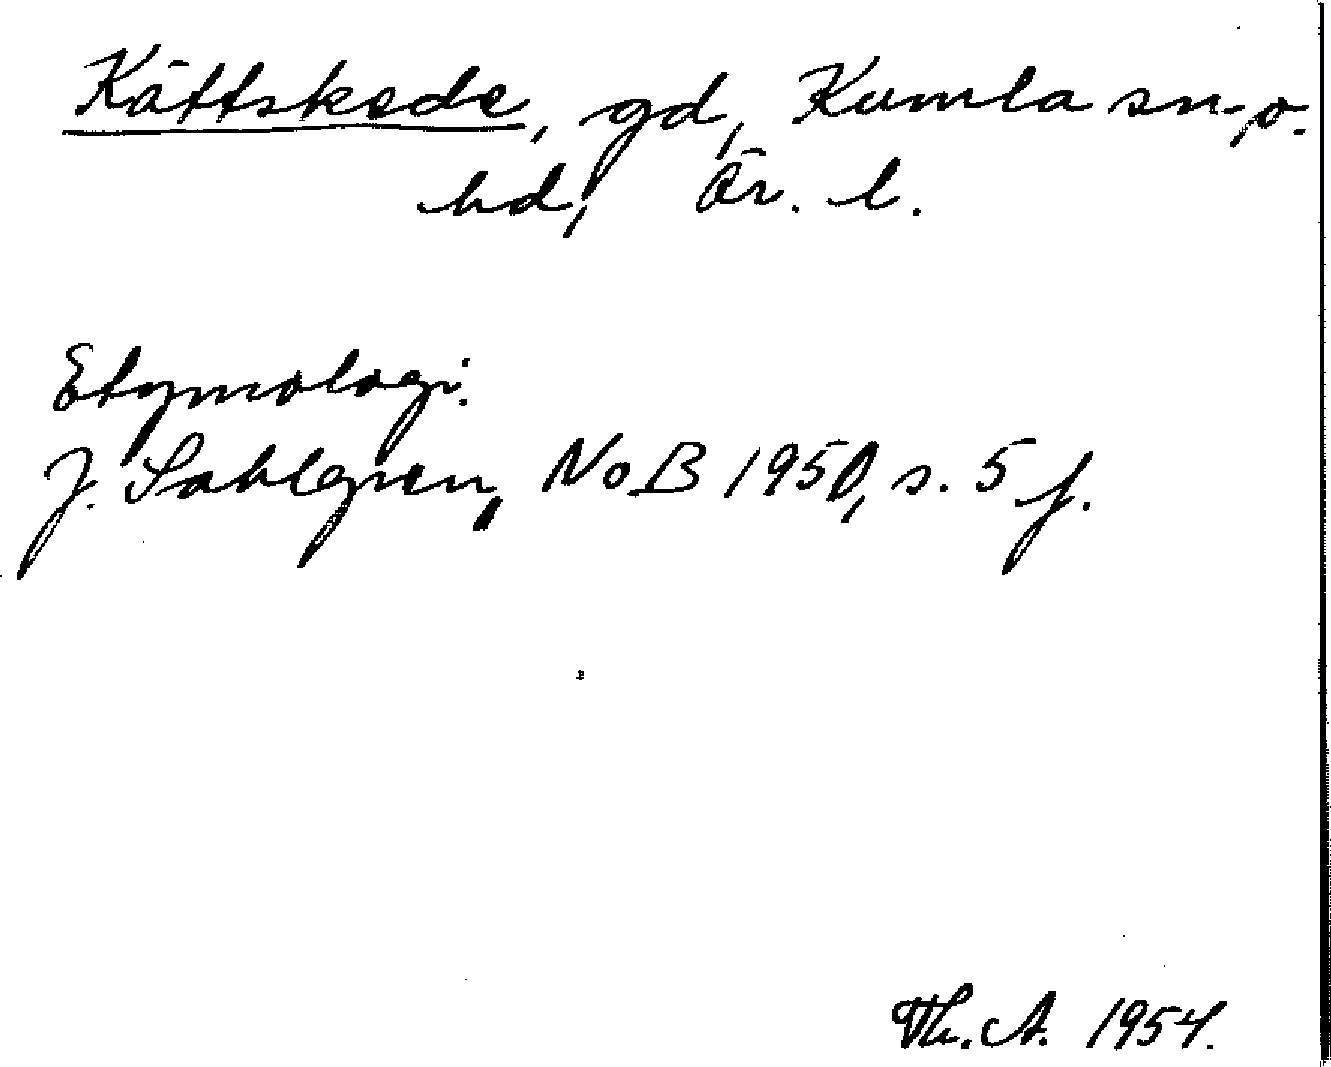 Kättskede, gd, Kumla sn o.
hd, Ör. l.
Etymologi:
J. Sahlgren, NoB 1950, s. 5 f.
Th. A. 1954.